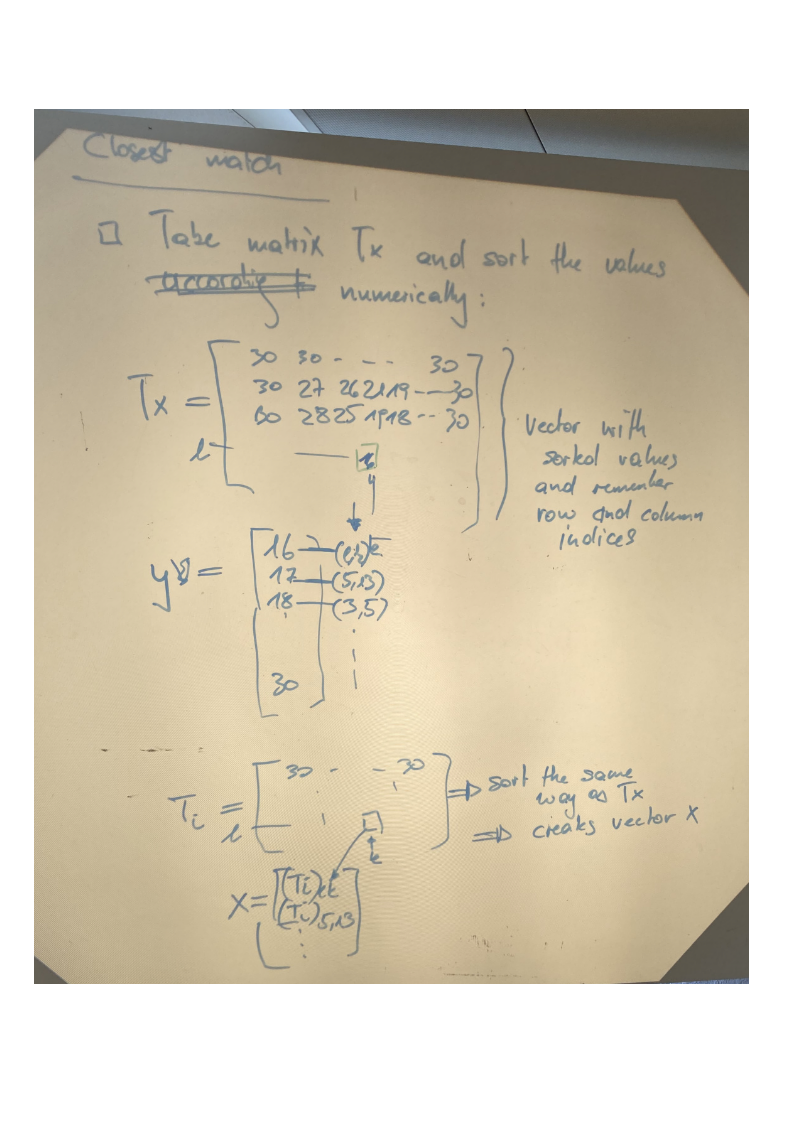 Closest match
□ Take matrix Tx and sort the values
numerically:
Tx =
30 30 - - - - 30
30 27 26 21 19 - - 30
28 25 19 18 - - 30
l
vector with
sorted values
and remember
row and column
indices
y =
16
17 (5,13)
18 (3,5)
30
Ti =
30 - - 30
l
k
⇒ sort the same
way as Tx
⇒ creates vector X
X =
(Ti)
(Ti)5,13